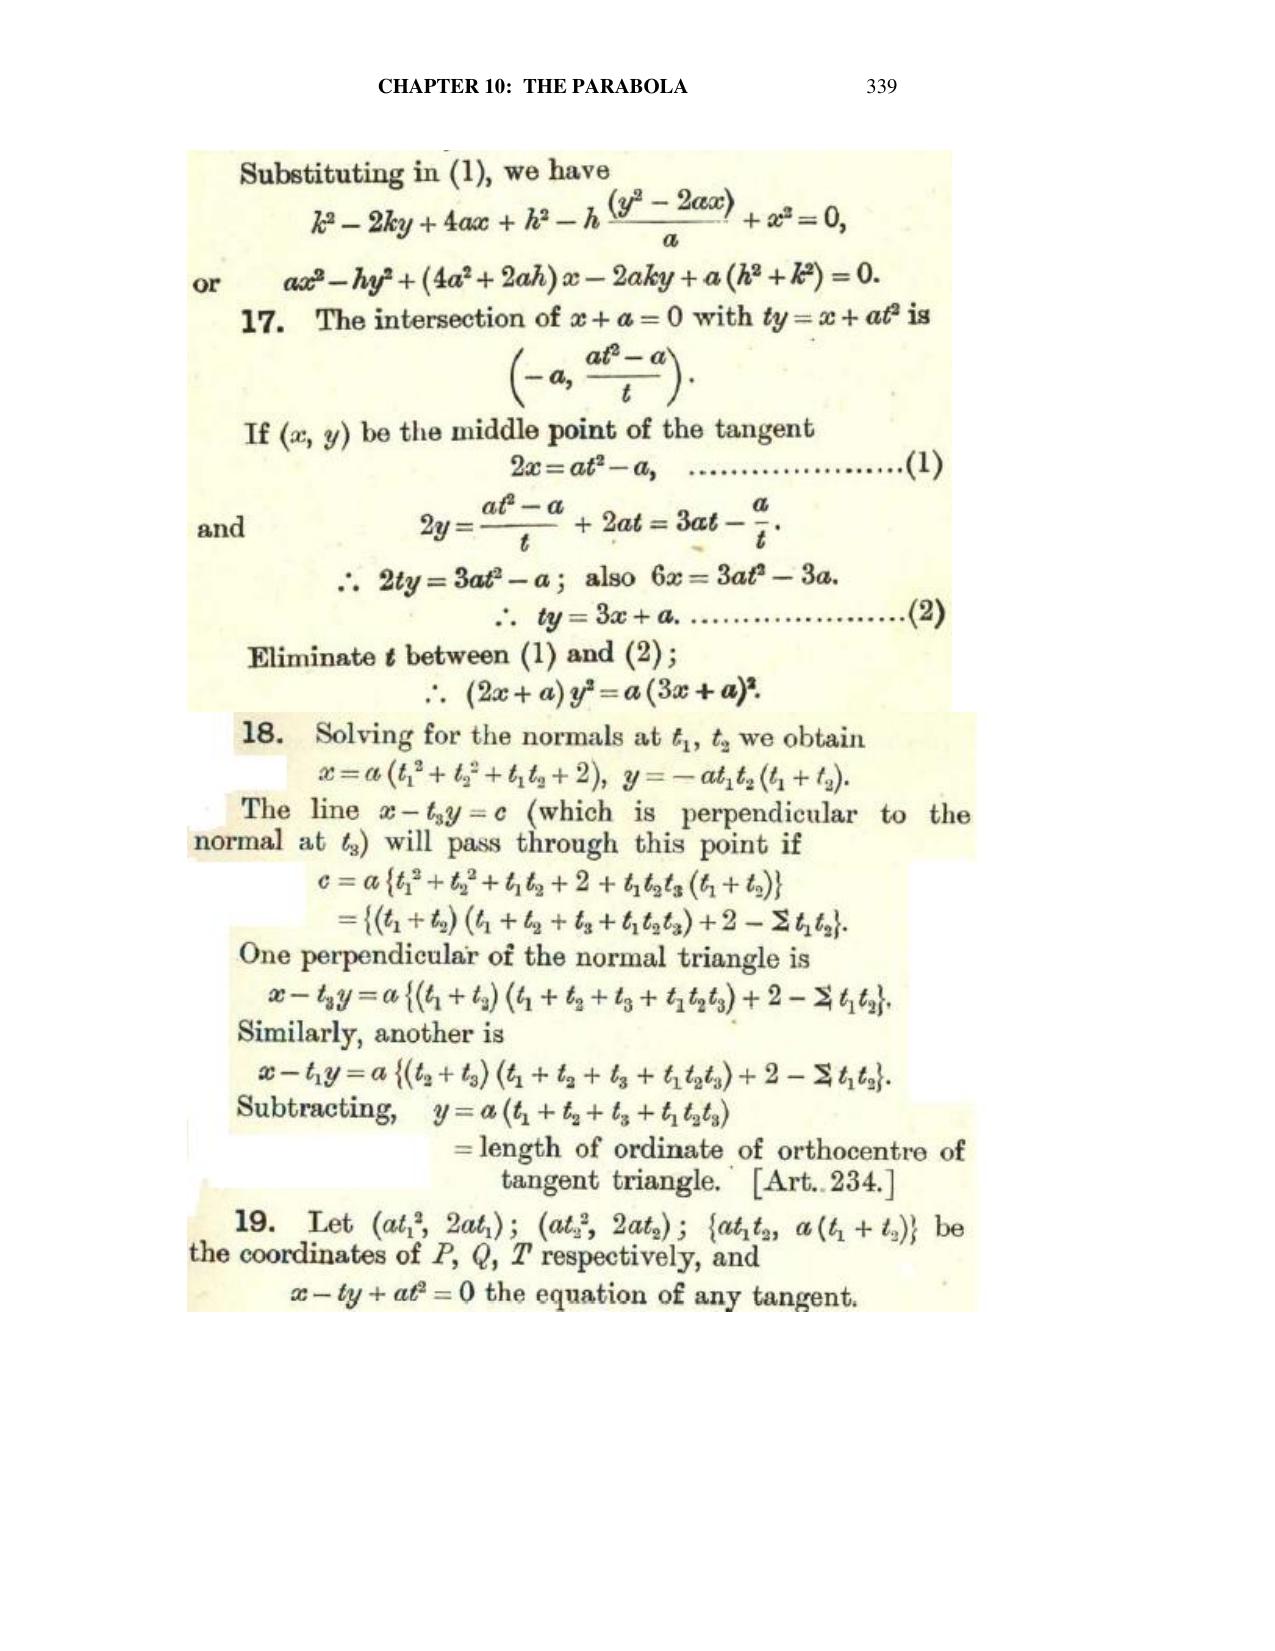 CHAPTER 10: THE PARABOLA 339
Substituting in (1), we have
k² – 2ky + 4ax + h² – h (y² – 2ax)/a + x² = 0,
or ax² – hy² + (4a² + 2ah) x – 2aky + a (h² + k²) = 0.
17. The intersection of x + a = 0 with ty = x + at² is
(– a, (at² – a)/t).
If (x, y) be the middle point of the tangent
2x = at² – a, .....................(1)
and 2y = (at² – a)/t + 2at = 3at – a/t.
∴ 2ty = 3at² – a ; also 6x = 3at² – 3a.
∴ ty = 3x + a. .....................(2)
Eliminate t between (1) and (2) ;
∴ (2x + a) y² = a (3x + a)².
18. Solving for the normals at t₁, t₂ we obtain
x = a (t₁² + t₂² + t₁t₂ + 2), y = – at₁t₂ (t₁ + t₂).
The line x – t₃y = c (which is perpendicular to the
normal at t₃) will pass through this point if
c = a {t₁² + t₂² + t₁t₂ + 2 + t₁t₂t₃ (t₁ + t₂)}
= {(t₁ + t₂) (t₁ + t₂ + t₃ + t₁t₂t₃) + 2 – Σ t₁t₂}.
One perpendicular of the normal triangle is
x – t₃y = a {(t₁ + t₂) (t₁ + t₂ + t₃ + t₁t₂t₃) + 2 – Σ t₁t₂}.
Similarly, another is
x – t₁y = a {(t₂ + t₃) (t₁ + t₂ + t₃ + t₁t₂t₃) + 2 – Σ t₁t₂}.
Subtracting, y = a (t₁ + t₂ + t₃ + t₁t₂t₃)
= length of ordinate of orthocentre of
tangent triangle. [Art. 234.]
19. Let (at₁², 2at₁) ; (at₂², 2at₂) ; {at₁t₂, a (t₁ + t₂)} be
the coordinates of P, Q, T respectively, and
x – ty + at² = 0 the equation of any tangent.